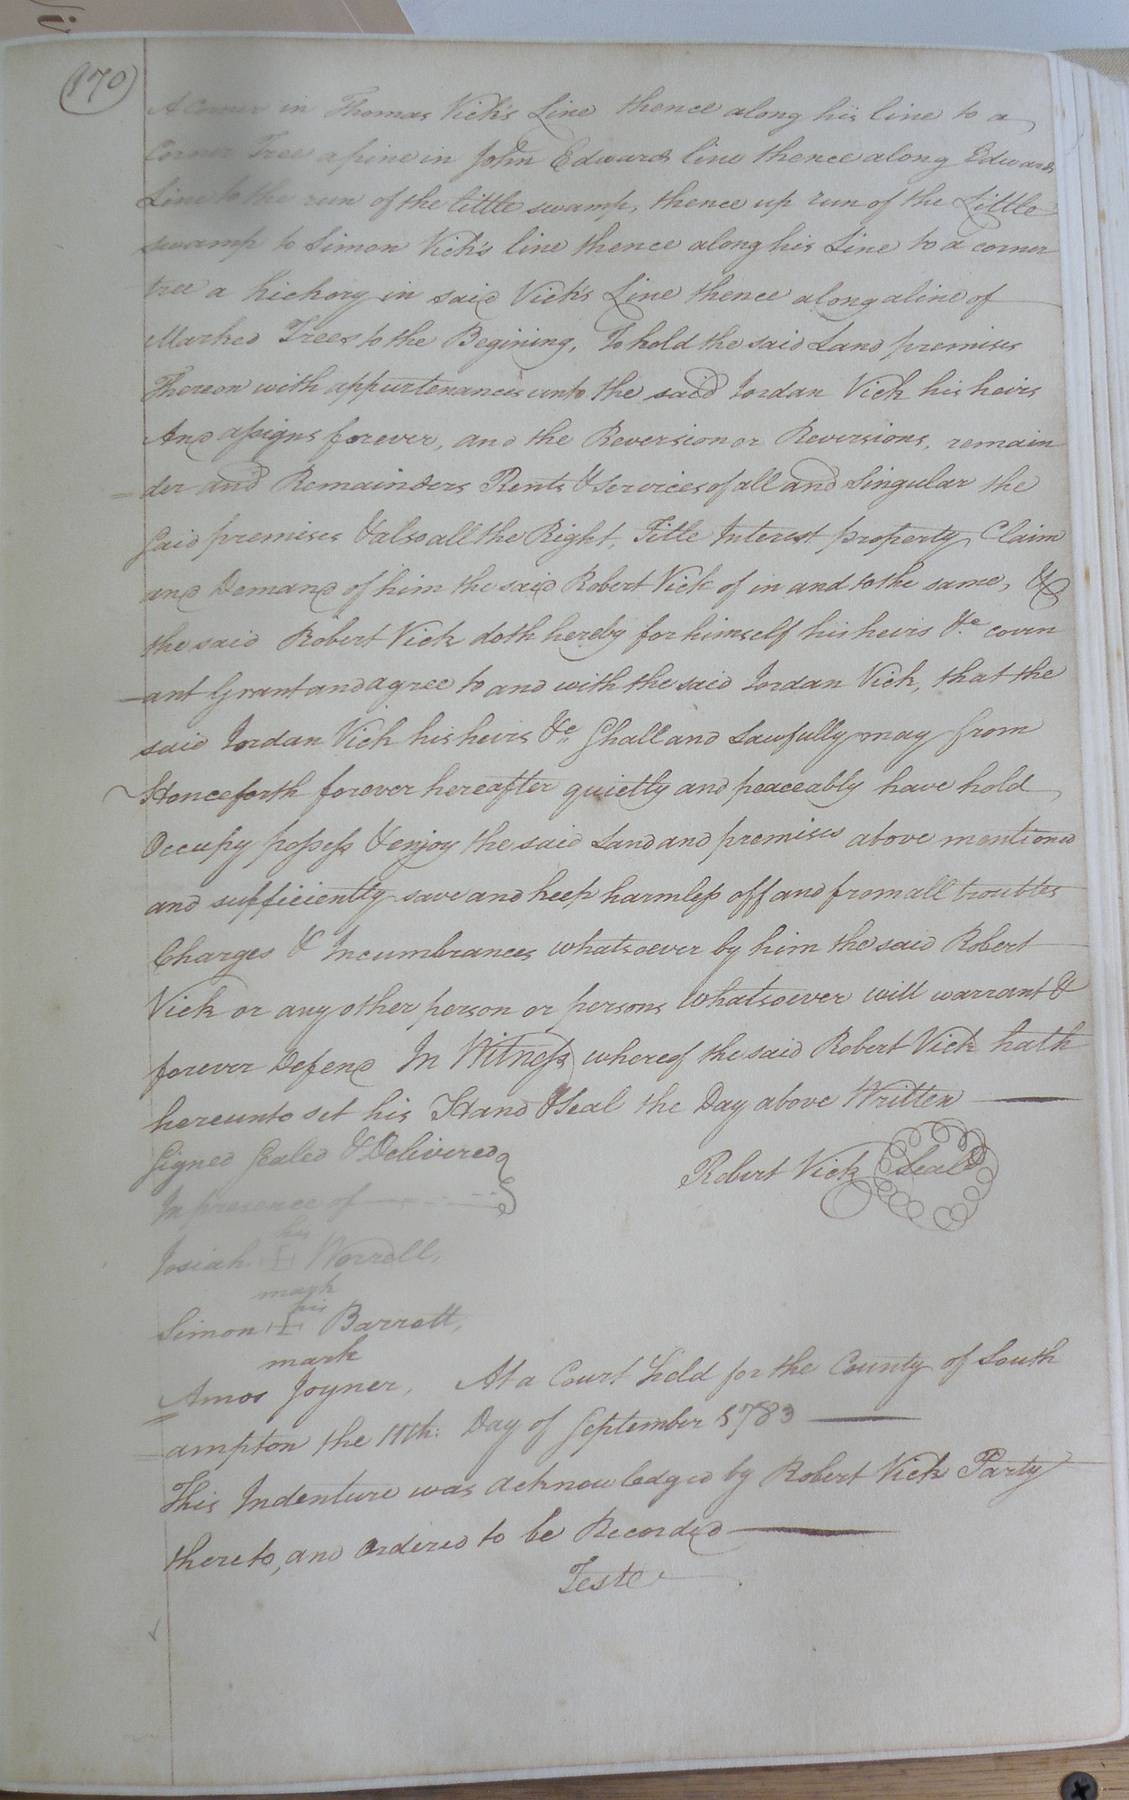 170
A corner in Thomas Vick's Line thence along his line to a
Corner Tree a pine in John Edwards line thence along Edwards
Line to the run of the little swamp, thence up run of the Little
swamp to Simon Vick's line thence along his Line to a corner
tree a hickory in said Vick's Line thence along a line of
Marked Trees to the Begining, To hold the said Land premises
Thereon with appurtenances unto the said Jordan Vick his heirs
And assigns forever, and the Reversion or Reversions, remain
der and Remainders Rents & Services of all and Singular the
Said premises & also all the Right, Title Interest property, Claim
and Demand of him the said Robert Vick of in and to the same, &
the said Robert Vick doth hereby for himself his heirs &c covin
ant Grant and agree to and with the said Jordan Vick, that the
said Jordan Vick his heirs &c Shall and Lawfully may from
Henceforth forever hereafter quietly and peaceably have hold
Occupy possess & enjoy the said Land and premises above mentioned
and sufficiently save and keep harmless off and from all troubles
Charges & Incumbrances whatsoever by him the said Robert
Vick or any other person or persons whatsoever will warrant &
forever Defend In Witness whereof the said Robert Vick hath
hereunto set his Hand & Seal the Day above Written
Signed Sealed & Delivered
Robert Vick Seal
In presence of
his
Josiah + Worrell,
mark
his
Simon + Barrett,
mark
Amos Joyner, At a Court held for the County of South
ampton the 11th: Day of September 1783
This Indenture was acknowledged by Robert Vick Party
thereto, and Ordered to be Recorded
Teste